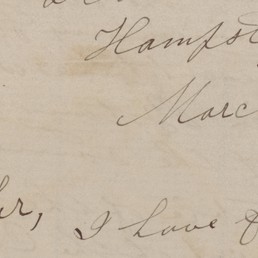 Hampst
Marc
er, I have